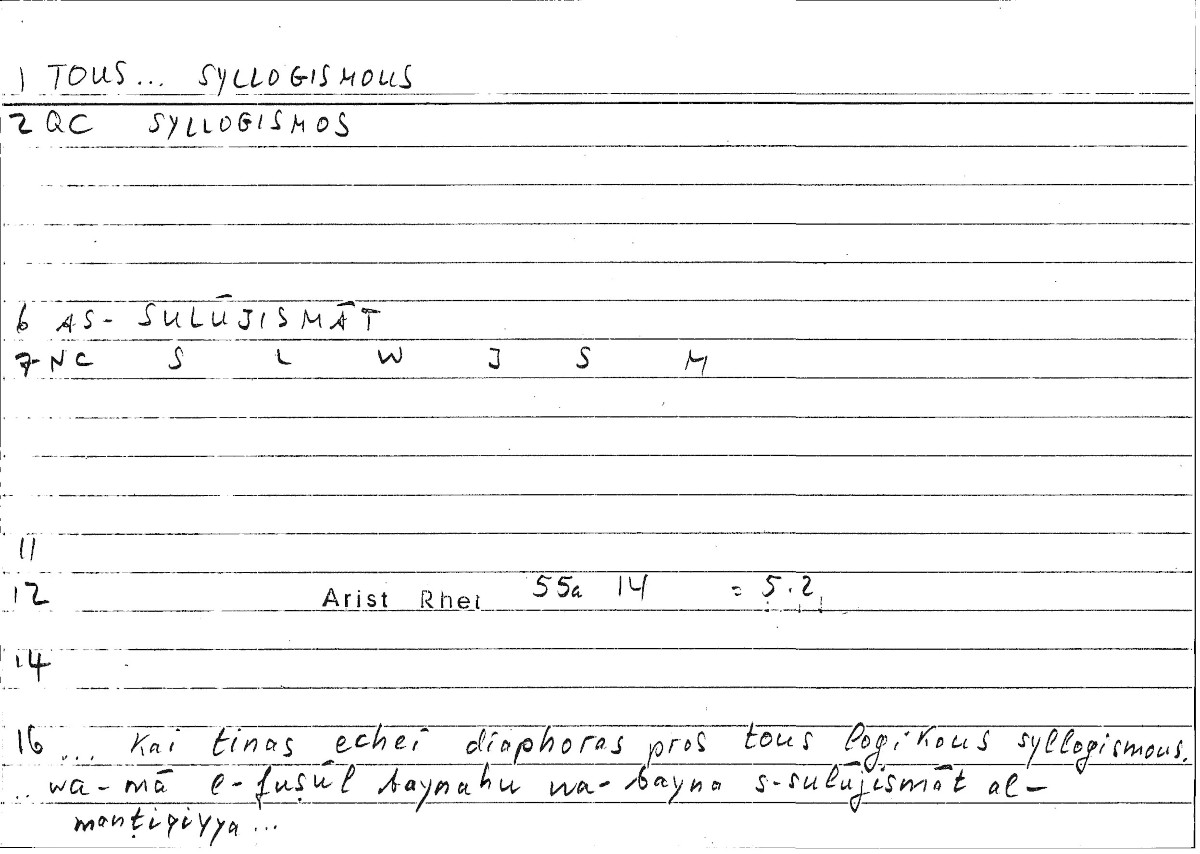 1 TOUS... SYLLOGISMOUS
2 QC SYLLOGISMOS
6 AS- SULŪJISMĀT
7 NC S L W J S M
11
12 Arist Rhet 55a 14 = 5.2
14
16 ... kai tinas echei diaphoras pros tous logikous syllogismous.
.. wa-mā l-fuṣūl baynahu wa-bayna s-sulūjismāt al-
manṭiqiyya ...